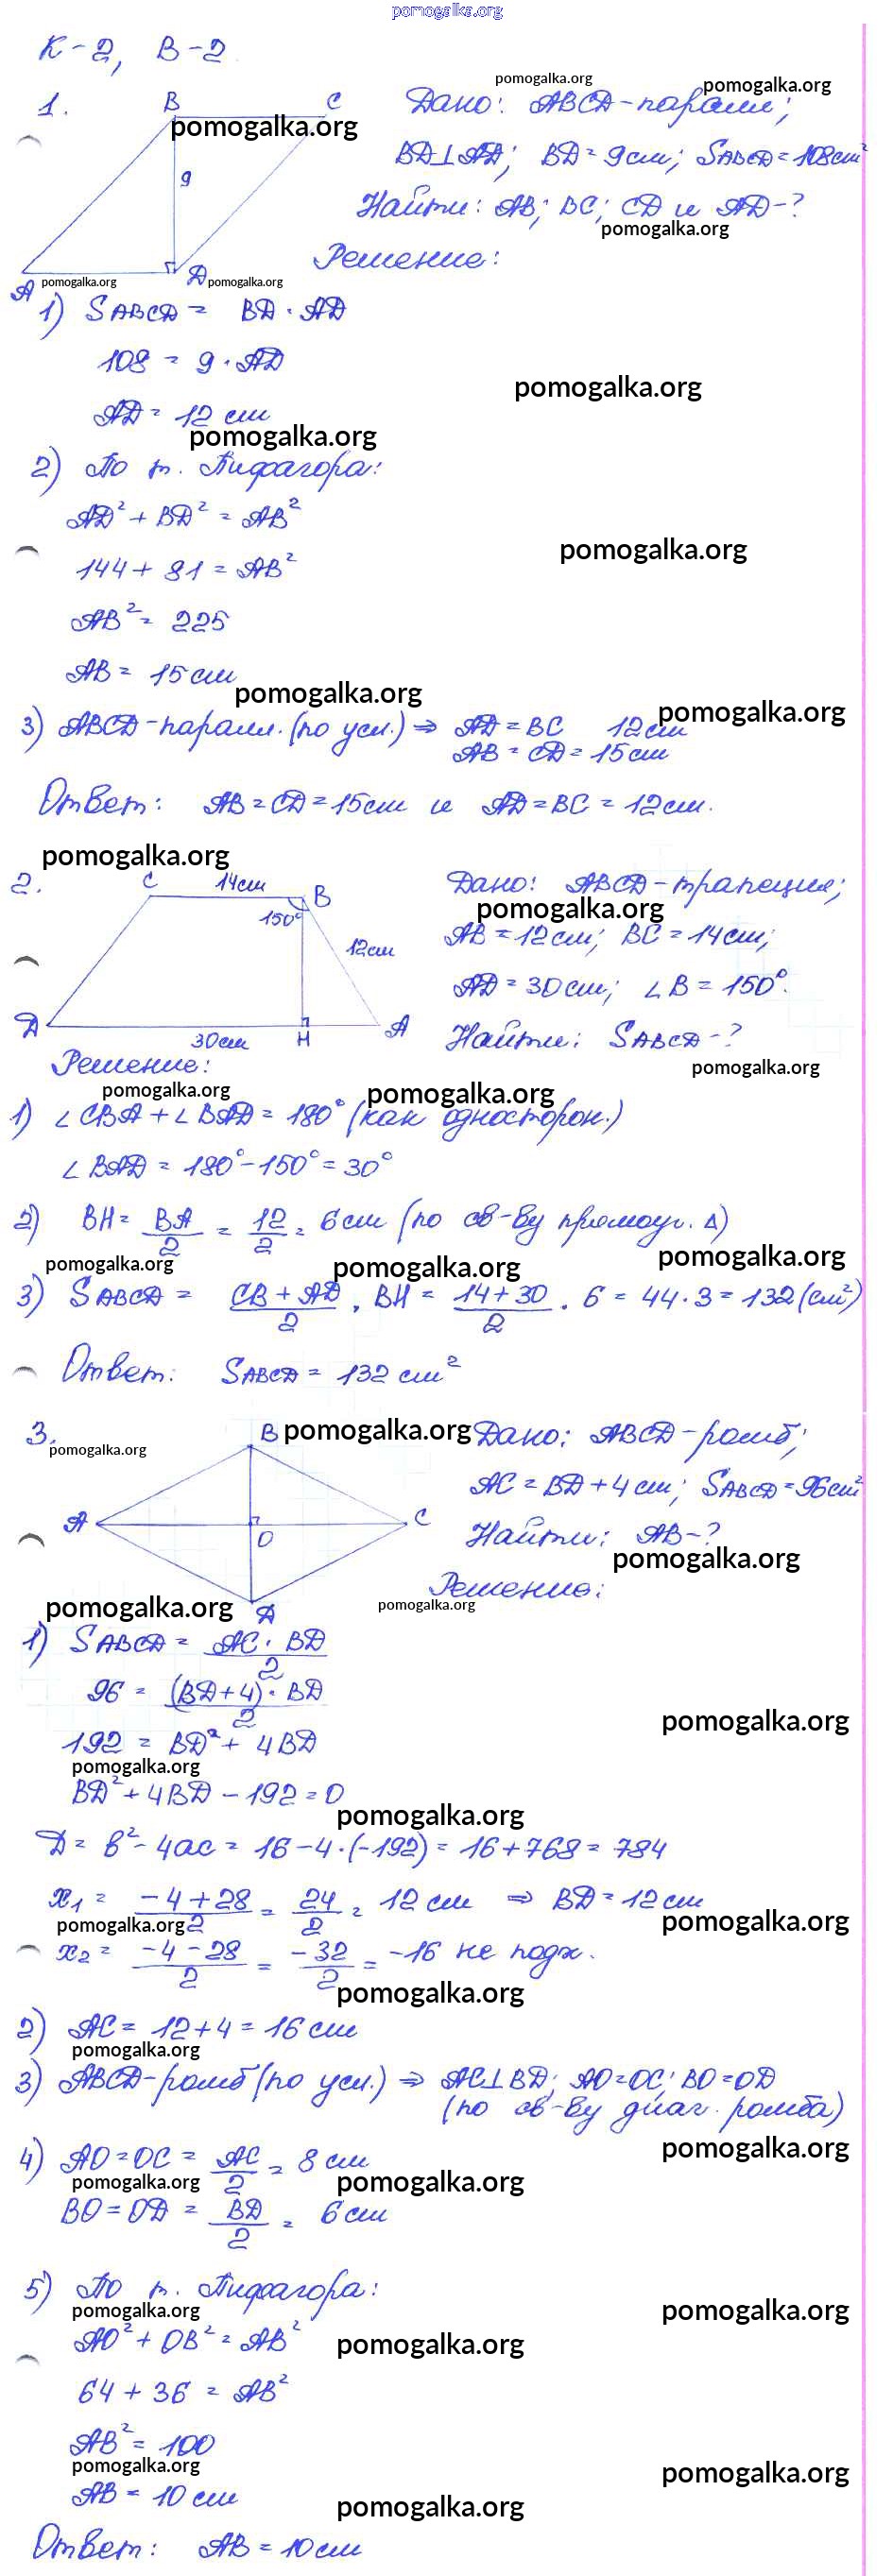 pomogalka.org
К-2, В-2
pomogalka.org
pomogalka.org
1.
B
C
Дано: ABCD-паралл;
pomogalka.org
9
BD⊥AD; BD=9см; SABCD=108см²
Найти: AB; BC; CD и AD-?
pomogalka.org
Решение:
A
pomogalka.org
D
pomogalka.org
1) SABCD = BD · AD
108 = 9 · AD
pomogalka.org
AD = 12 см
pomogalka.org
2) По т. Пифагора:
AD² + BD² = AB²
pomogalka.org
144 + 81 = AB²
AB² = 225
AB = 15 см
pomogalka.org
pomogalka.org
3) ABCD-паралл. (по усл.) ⇒ AD = BC 12см
AB = CD = 15см
Ответ: AB = CD = 15см и AD = BC = 12см.
pomogalka.org
2.
C
14см
B
150°
12см
Дано: ABCD-трапеция;
pomogalka.org
AB = 12см; BC = 14см;
AD = 30см; ∠B = 150°.
D
30см
H
A
Найти: SABCD-?
pomogalka.org
Решение:
pomogalka.org
pomogalka.org
1) ∠CBA + ∠BAD = 180° (как односторон.)
∠BAD = 180° - 150° = 30°
2) BH = BA/2 = 12/2 = 6см (по св-ву прямоуг. Δ)
pomogalka.org
pomogalka.org
pomogalka.org
3) SABCD = CB + AD/2 · BH = 14+30/2 · 6 = 44·3 = 132(см²)
Ответ: SABCD = 132 см²
3.
pomogalka.org
B
pomogalka.org
Дано: ABCD-ромб;
AC = BD + 4см; SABCD = 96см²
A
C
O
Найти: AB-?
pomogalka.org
Решение:
pomogalka.org
pomogalka.org
D
1) SABCD = AC · BD/2
96 = (BD+4) · BD/2
pomogalka.org
192 = BD² + 4BD
pomogalka.org
BD² + 4BD - 192 = 0
pomogalka.org
D = b² - 4ac = 16 - 4·(-192) = 16 + 768 = 784
x₁ = -4 + 28/2 = 24/2 = 12 см ⇒ BD = 12см
pomogalka.org
pomogalka.org
x₂ = -4 - 28/2 = -32/2 = -16 не подх.
pomogalka.org
2) AC = 12 + 4 = 16 см
pomogalka.org
3) ABCD-ромб (по усл.) ⇒ AC⊥BD; AO=OC; BO=OD
(по св-ву диаг. ромба)
pomogalka.org
4) AO = OC = AC/2 = 8 см
pomogalka.org
pomogalka.org
BO = OD = BD/2 = 6 см
5) По т. Пифагора:
pomogalka.org
pomogalka.org
AO² + OB² = AB²
pomogalka.org
64 + 36 = AB²
AB² = 100
pomogalka.org
pomogalka.org
AB = 10 см
pomogalka.org
Ответ: AB = 10см